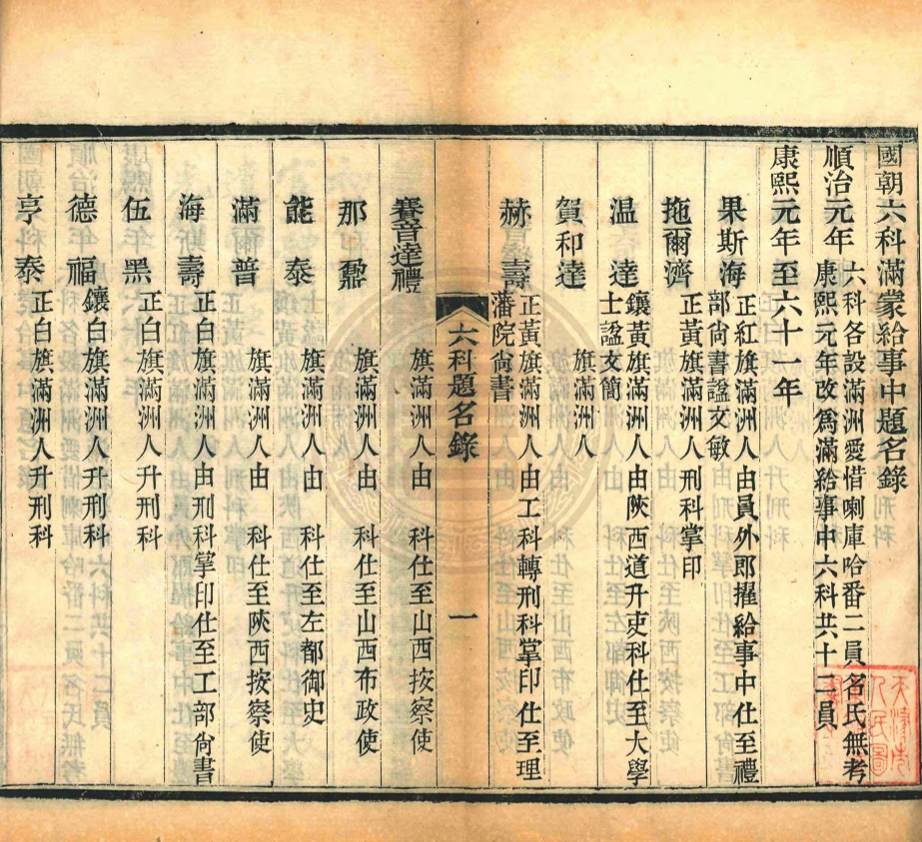 國朝六科滿蒙給事中題名錄
順治元年 六科各設滿洲愛惜喇庫哈番二員名氏無考
康熙元年改爲滿給事中六科共十二員
康熙元年至六十一年
果斯海 正紅旗滿洲人由員外郎擢給事中仕至禮
部尚書諡文敏
拖爾濟 正黃旗滿洲人刑科掌印
温達 鑲黃旗滿洲人由陝西道升吏科仕至大學
士諡文簡
賀和達 旗滿洲人
赫壽 正黃旗滿洲人由工科轉刑科掌印仕至理
藩院尚書
六科題名錄 一
賽音達禮 旗滿洲人由 科仕至山西按察使
那鼐 旗滿洲人由 科仕至山西布政使
能泰 旗滿洲人由 科仕至左都御史
滿爾普 旗滿洲人由 科仕至陝西按察使
海斯壽 正白旗滿洲人由刑科掌印仕至工部尚書
伍黑 正白旗滿洲人升刑科
德福 鑲白旗滿洲人升刑科
亨泰 正白旗滿洲人升刑科